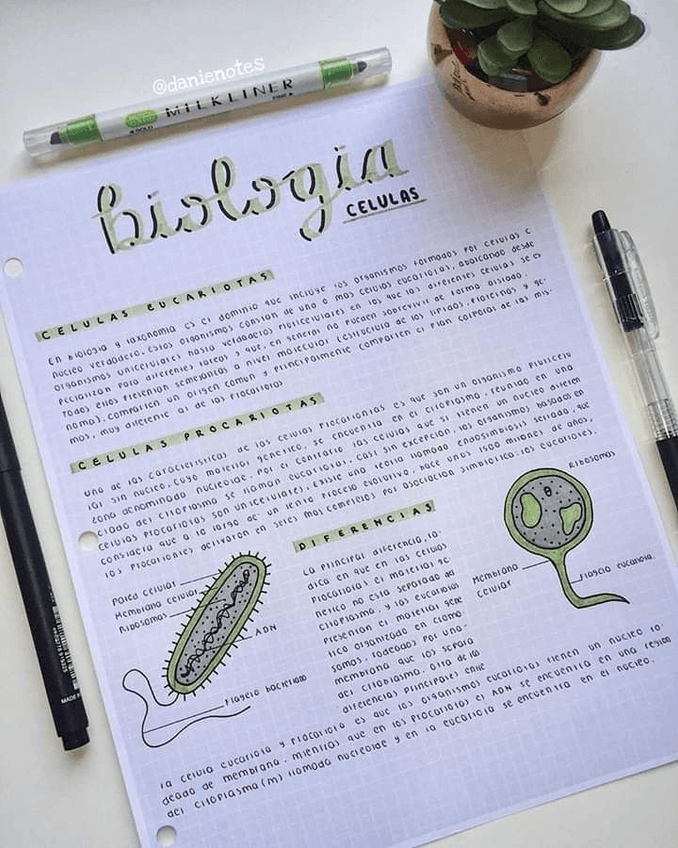 @danienotes
MILKLINER
biología
CELULAS
CELULAS EUCARIOTAS
EN BIOLOGIA Y TAXONOMIA ES EL DOMINIO QUE INCLUYE LOS ORGANISMOS FORMADOS POR CELULAS C
NUCLEO VERDADERO. ESTOS ORGANISMOS CONSTAN DE UNA O MAS CELULAS EUCARIOTAS, ABARCANDO DESDE
ORGANISMOS UNICELULARES HASTA VERDADEROS PLURICELULARES EN LOS QUE LAS DIFERENTES CELULAS SE ES
PECIALIZAN PARA DIFERENTES TAREAS Y QUE, EN GENERAL NO PUEDEN SOBREVIVIR DE FORMA AISLADA.
TODOS ELLOS PRESENTAN SEMEJANZAS A NIVEL MOLECULAR (ESTRUCTURA DE LOS LIPIDOS, PROTEINAS Y GE-
NOMA), COMPARTEN UN ORIGEN COMUN Y PRINCIPALMENTE COMPARTEN EL PLAN CORPORAL DE LOS MIS-
MOS, MUY DIFERENTE AL DE LAS PROCARIOTAS
CELULAS PROCARIOTAS
UNA DE LAS CARACTERISTICAS DE LAS CELULAS PROCARIONTAS ES QUE SON UN ORGANISMO PLURICELU
LAS SIN NUCLEO, CUYO MATERIAL GENETICO, SE ENCUENTRA EN EL CITOPLASMA, REUNIDO EN UNA
ZONA DENOMINADA NUCLEOIDE. POR EL CONTRARIO LAS CELULAS QUE SI TIENEN UN NUCLEO DIFEREN
CIADO DEL CITOPLASMA SE LLAMAN EUCARIOTAS, CASI SIN EXCEPCION LOS ORGANISMOS BASADOS EN
CELULAS PROCARIOTAS SON UNICELULARES. EXISTE UNA TEORIA LLAMADA ENDOSIMBIOSIS SERIADA, QUE
CONSIDERA QUE A LO LARGO DE UN LENTO PROCESO EVOLUTIVO, HACE UNOS 1500 MILLONES DE AÑOS,
LOS PROCARIONTES DERIVARON EN SERES MAS COMPLEJOS POR ASOCIACION SIMBIOTICA: LOS EUCARIONTES.
PARED CELULAR
MEMBRANA CELULAR
RIBOSOMAS
ADN
FLAGELO BACTERIANO
DIFERENCIAS
LA PRINCIPAL DIFERENCIA, RA-
DICA EN QUE EN LAS CELULAS
PROCARIOTAS EL MATERIAL GE-
NETICO NO ESTA SEPARADO DEL
CITOPLASMA, Y LAS EUCARIOTAS
PRESENTAN EL MATERIAL GENE
TICO ORGANIZADO EN CROMO
SOMAS, RODEADOS POR UNA
MEMBRANA QUE LOS SEPARA
DEL CITOPLASMA. OTRA DE LAS
DIFERENCIAS PRINCIPALES ENTRE
RIBOSOMAS
MEMBRANA
CELULAR
FLAGELO EUCARIOTA
LA CELULA EUCARIOTA Y PROCARIOTA ES QUE LOS ORGANISMOS EUCARIOTAS TIENEN UN NUCLEO RO-
DEADO DE MEMBRANA, MIENTRAS QUE EN LOS PROCARIOTAS EL ADN SE ENCUENTRA EN UNA REGION
DEL CITOPLASMA (M) LLAMADA NUCLEOIDE Y EN LA EUCARIOTA SE ENCUENTRA EN EL NUCLEO.